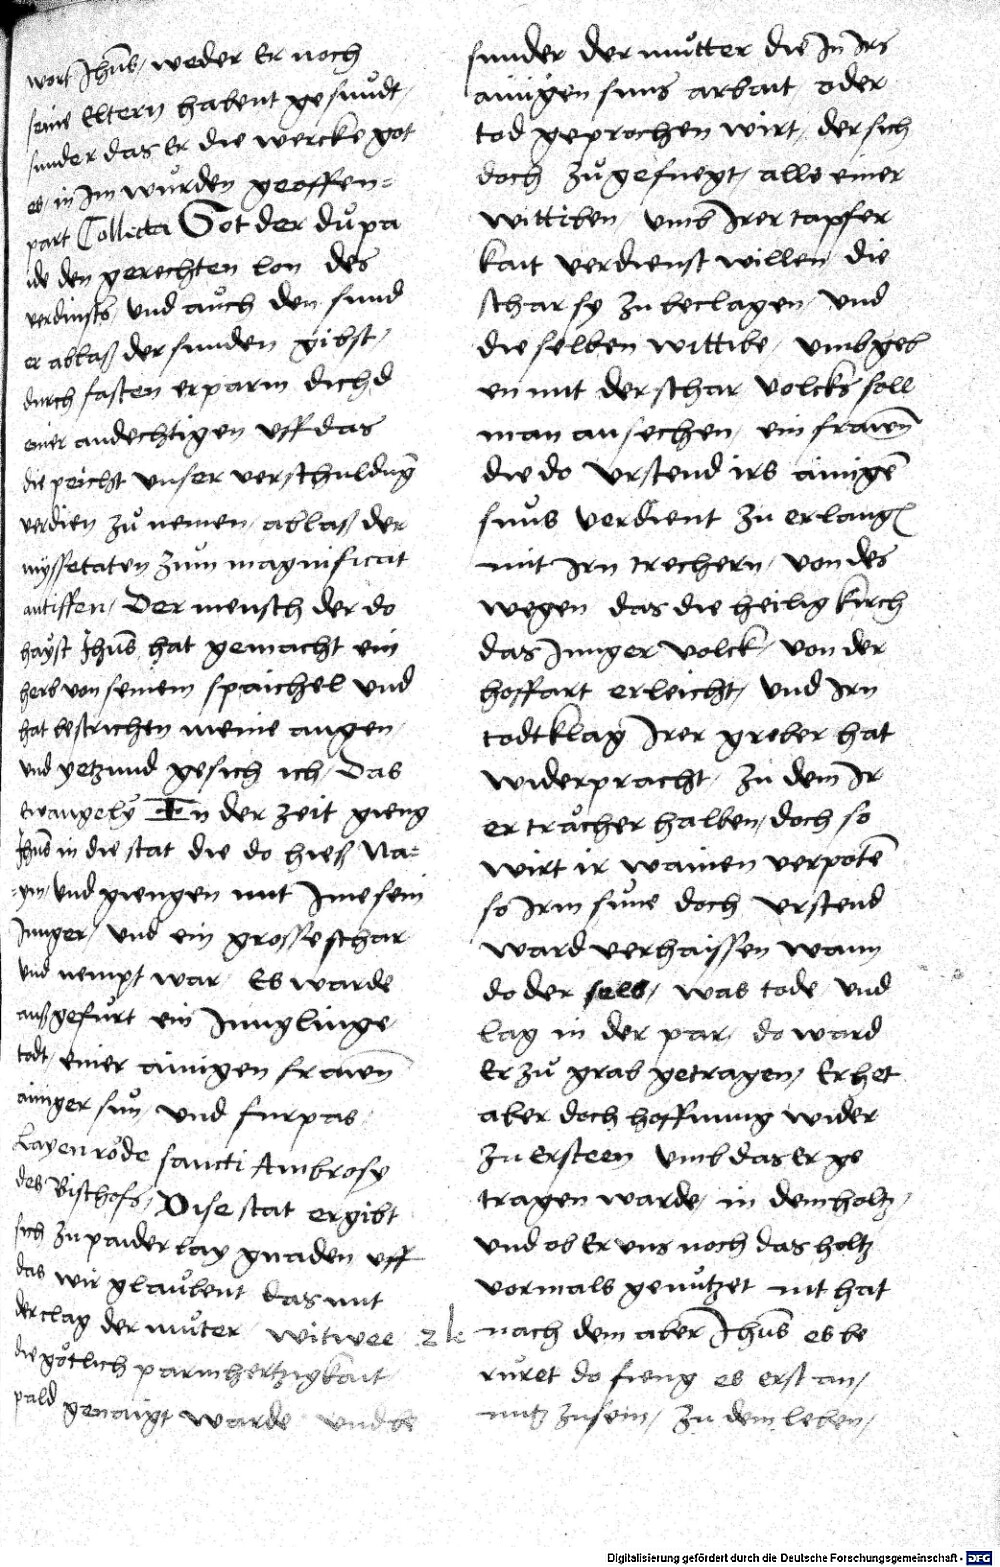 wort Jhūs, weder Er noch
seine Eltern habent gesundt,
sunder das Er die wercke got
es, in Im wurden geoffen=
part Collecta Got der du pa
ide den gerechten lon des
verdinsts, und auch den sund
er ablaß der sunden gibst,
durch fasten erparm dich d
einer andechtigen uff das
die peicht unser verschuldūg
verdien zů nemen, ablaß der
myssetaten zum magnificat
antiffen, Der mensch der do
hayst Jhūs hat gemacht ein
herb von seinem spaichel und
hat bestrichen meine augen,
und yetzund gesich ich, Das
ewangely In der zeit gieng
Jhūs in die stat die do hieß Na=
=ym, und giengen mit Ime sein
Junger, und ein grosse schar
und nempt war, Es warde
außgefurt ein Junglinge,
todt, einer ainigen frawēn
ainiger sun, und furpas
Layen rode sancti Ambrosy
des Bischofs, Dise stat ergibt
sich zu paider lay gnaden uff
das wir glaubent das mit
der clag der můter, witwee
die gotlich parmhertzigkait
pald genaigt warde und be
sunder der mutter die In Irs
ainigen suns arbait, oder
tod geprochen wirt, der sich
doch zů gefuegt, alls einer
wittiben, umb Irer tapfer
kait verdienst willen die
schar sy zu beclagen, und
die selben wittibe, umbgeb
en mit der schar volcks soll
man ansechen, ein frawēn
die do urstend irs ainigē
suns verdient zu erlang
mit Irn trechern, von des
wegen das die heilig kirch
das Junger volck, von der
hoffart erleicht, und Irn
todtklag Irer greber hat
widerpracht, zu dem Ir
er tracher halben, doch so
wirt ir wainen verpotē
so Irm sune doch urstend
ward verhaissen wann
do der selb, was tode und
lag in der par, do ward
Er zů grab getragen, Er het
aber doch hoffnung wider
zu ersteen umb das Er ge
tragen warde, in dem holtz,
und ob Er uns noch das holtz
vormals genutzet nit hat
nach dem aber Jhūs es be
ruret do fieng es erst an,
nutz zusein, zu dem leben,